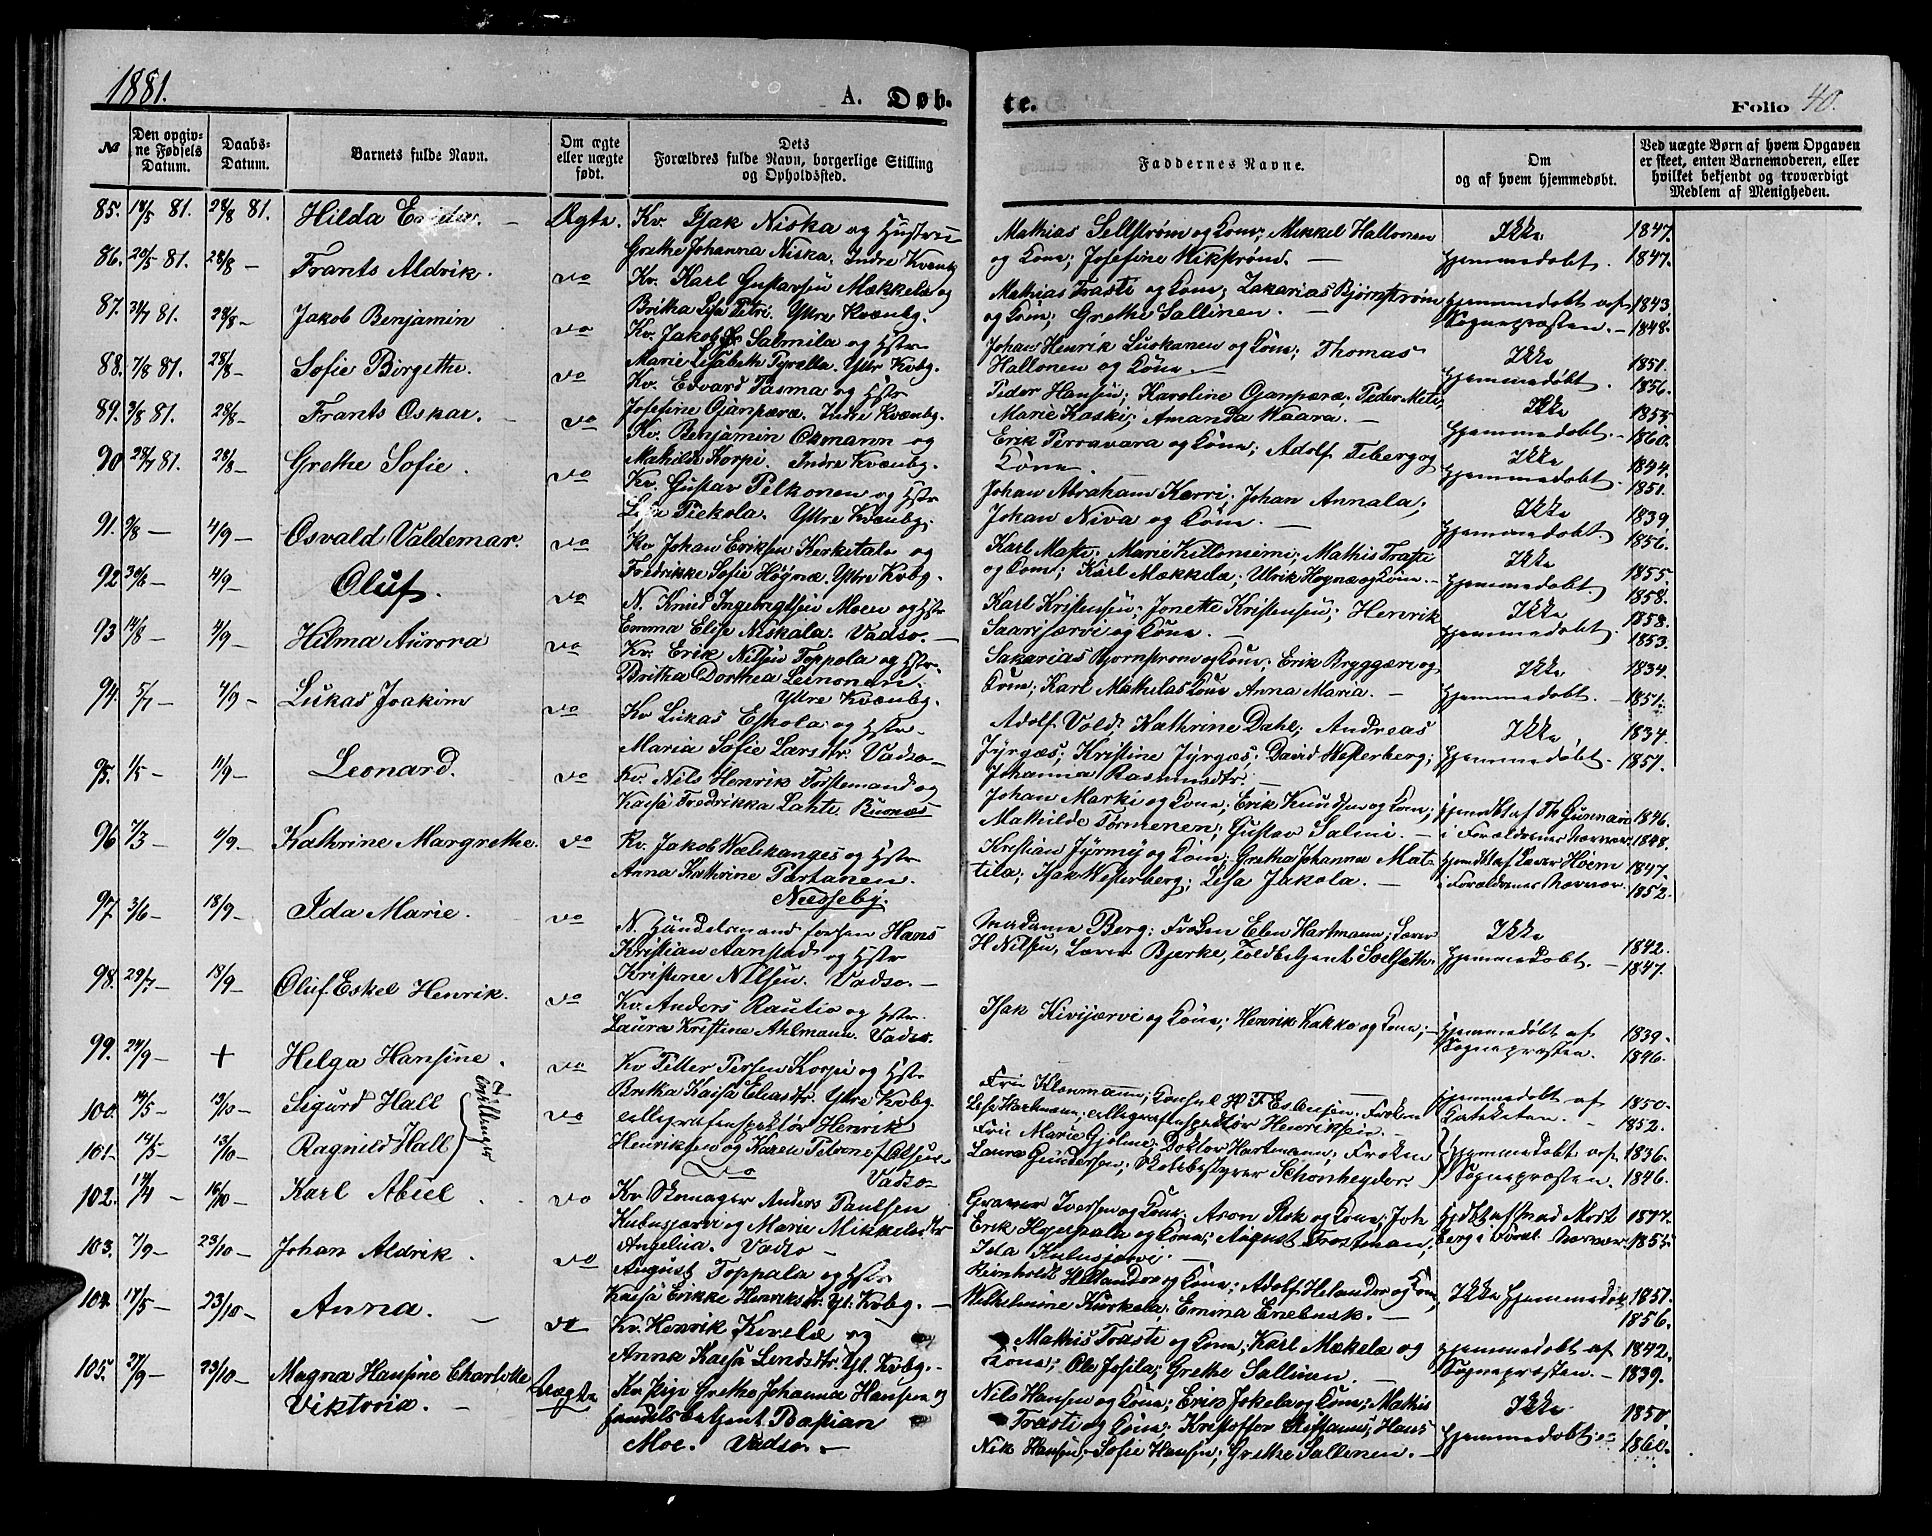 1881.
A. Døb-
te.
Folio 40.
№
Den opgiv-
ne Fødsels
Datum.
Daabs-
Datum.
Barnets fulde Navn.
Om ægte
eller uægte
født.
Dets
Forældres fulde Navn, borgerlige Stilling
og Opholdsted.
Faddernes Navne.
Om
og af hvem hjemmedøbt.
Ved uægte Børn af hvem Opgaven
er skeet, enten Barnemoderen, eller
hvilket bekjendt og troværdigt
Medlem af Menigheden.
85. 18/5 81. 28/8 81. Hilda Ægte. Kv. Isak Niska og Hustru
Grethe Johanna Niska. Indre Kvænbg
Mathias Sellstrøm og Kone; Mikkel Hallonen
og Kone; Josefine Wikstrøm. —
Ikke
hjemmedøbt.
1847.
1847.
86. 20/5 81. 28/8 — Frants Aldrik. do Kv. Karl Gustavsen Mækkelæ og
Britha Lisa Petri. Ytre Kvænbg.
Mathias Trasti og Kone; Zakarias Bjørnstrøm
og Kone; Grethe Sallinen. —
hjemmedøbt af
Sognepræsten. —
1843.
1848.
87. 81. 28/8 — Jakob Benjamin do Kv. Jakob Salmila og Hstr
Marie Lisabeth Pyrella. Ytre Kvbg.
Johan Henrik Luskanen og Kone; Thomas
Hallonen og Kone. —
Ikke
hjemmedøbt.
1851.
1856.
88. 7/8 81. 28/8 — Sofie Birgethe. do Kv. Edvard Tasma og Hstr
Josefine Ojanperæ. Indre Kvænbg.
Peder Hansen; Karoline Ojanperæ; Peder
Marie Kaski; Amanda Waara. —
Ikke
hjemmedøbt. —
1855
1860.
89. 3/8 81. 28/8 — Frants Oskar. do Kv. Benjamin Osmann og
Mathilde Korpi. Indre Kvænbg.
Erik Perravara og Kone; Adolf Feberg og
Kone. —
Ikke
hjemmedøbt.
1844
1851.
90 28/7 81. 28/8 — Grethe Sofie. do Kv. Gustav Pelkonen og Hstr
Lisa Piekola. Ytre Kvænbg.
Johan Abraham Karri; Johan Annala;
Johan Niva og Kone. —
Ikke
hjemmedøbt.
1839.
1856.
91. 9/8 — 4/9 — Osvald Valdemar. do Kv. Johan Eriksen Kerketalo og
Fredrikke Sofie Høynæ. Ytre Kvbg.
Karl Maske; Marie Kittoniemi; Mathis Traste
og Kone; Karl Mækkelæ; Ulrik Høynæ og Kone. —
Ikke
hjemmedøbt.
1855.
1858.
92 30/6 — 4/9 — Oluf. do N. Knud Ingebrigtsen Moen og Hstr
Emma Elise Niskala. Vadsø. —
Karl Kristensen; Jonette Kristensen; Henrik
Saarijærvi og Kone. —
Ikke
hjemmedøbt.
1858.
1853.
93 14/8 — 4/9 — Hilma Aurora do Kv. Erik Nilsen Toppola og Hstr.
Britha Dorthea Leinonen.
Ytre Kvænbg.
Sakarias Bjørnstrøm og Kone; Erik Bryggari og
Kone; Karl Mathilas Kone Anna Maria. —
Ikke
hjemmedøbt. —
1834.
1851.
94. 5/7 — 4/9 — Lukas Joakim do Kv Lukas Eskola og Hstr.
Maria Sofie Larsdtr. Vadsø —
Adolf Vold; Kathrine Dahl; Andreas
Jyrgæs; Kristine Jyrgæs; David Westerberg;
Johanna Rasmusdtr. —
Ikke
hjemmedøbt.
1834.
1857.
95. 1/5 — 11/9 — Leonard. do Kv. Nils Henrik Torstemand og
Kaisa Fredrikka Lahti. Bunæs
Johan Marki og Kone; Erik Knudsen og Kone;
Mathilde Tørmenen; Gustav Salmi. —
hjemdbt af Th Gunnari
i Forældrenes Nærvær.
1846.
1848.
96 7/3 — 4/9 — Kathrine Margrethe. do Kv. Jakob Wælikanges og Hstr
Anna Kathrine Partanen.
Næsseby.
Kristian Jyrmø og Kone; Grethe Johanna Mat-
tila; Isak Westerberg; Lisa Jakola. —
hjemdbt af Lærer Hoem
i Forældrenes Nærvær.
1847.
1852.
97. 3/6 — 18/9 — Ida Marie. do N. Handelsmand forhen Hans
Kristian Aanstad og Hstr
Kristine Nilsen. Vadsø. —
Madame Berg; Frøken Elen Hartmann; Lærer
H Nilsen, Lærer Bjerke, Toldbetjent Soelseth.
Ikke
hjemmedøbt. —
1842.
1847.
98. 29/7 — 18/9 — Oluf Eskel Henrik. do Kv. Anders Rautio og Hstr.
Laura Kristine Ahlmann. Vadsø.
Isak Kivijærvi og Kone; Henrik Kakko og Kone; —
hjemmedøbt af
Sognepræsten. —
1839.
1846.
99. 24/9 — + Helga Hansine. do Kv Petter Persen Korpi og Hstr
Bretha Kaisa Eliasdtr. Ytre Kvbg.
100. 14/5 — 13/10 — Sigurd Hall
Tvillinger
do Telegrafinspektør Henrik
Henriksen og Karen Petrone f. Olsen —
Vadsø —
Fru Klonmann; Konsul H F Esbensen; Frøken
Lisa Hartmann; Telegrafinspektør Henriksen. —
hjemmedøbt af
Kateketen. —
1850.
1852.
101. 14/5 — 13/10 — Ragnild Hall do
Fru Marie Gjølme; Doktor Hartmann; Frøken
Laura Gundersen; Skolebestyrer Schønheyder.
hjemmedøbt af
Sognepræsten.
1836.
1846.
102. 14/4 — 16/10 — Karl Abiel do Kv. Skomager Anders Paulsen
Kubusjærvi og Marie Mikkelsdtr
Angelia. Vadsø —
Graver Iversen og Kone; Aron Rok og Kone; Joh
Erik Hyepala og Kone; August Trostman;
Ida Kubusjærvi. —
1855.
103. 7/9 — 23/10 — Johan Aldrik. do August Toppala og Hstr
Kaisa Erikke Henriksdtr. Yt. Kvbg. —
Reinholdt Helander og Kone; Adolf Helander og Kone,
Wilhelmine Kurkela; Emma Enebusk. —
Ikke hjemmedøbt
1851.
1856.
104. 17/5 — 23/10 — Anna. — do Kv. Henrik Kivelæ og
Anna Kaisa Lensdtr. Yt. Kvbg. —
Mathis Trasti og Kone; Karl Mækelæ og
Kone; Ole Josila; Grethe Sallinen. —
hjemmedøbt af
Sognepræsten. —
1842.
1839.
105. 27/9 — 23/10 — Magna Hansine Charlotte
Viktoria. —
Uægte Kv. pige Grethe Johanna Hansen og
Handelsbetjent Bastian
Moe. Vadsø. —
Nils Hansen og Kone; Erik Jokela og Kone; Mathis
Trasti og Kone; Kristoffer Hans
Nik Hansen; Sofie Hansen; Grethe Sallinen. —
Ikke
hjemmedøbt.
1850.
1860.